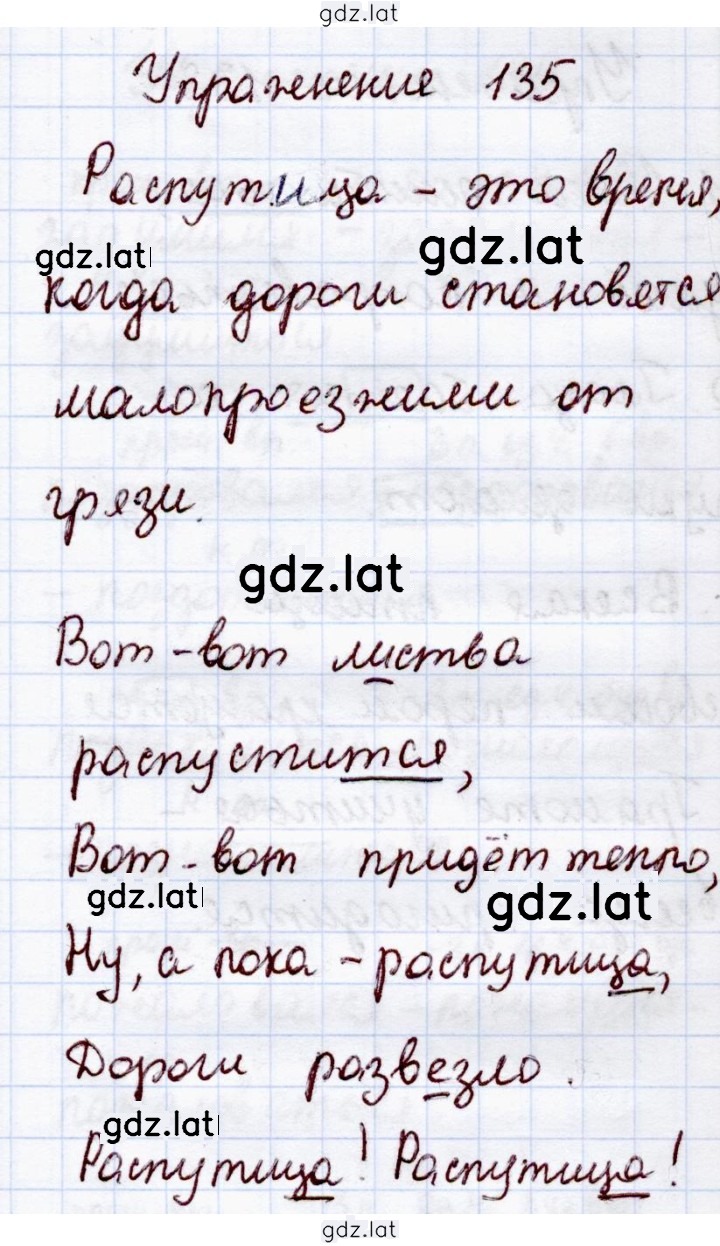 gdz.lat
Упражнение 135
Распутица - это время,
gdz.lat
gdz.lat
когда дороги становятся
малопроезжими от
грязи.
gdz.lat
Вот-вот листва
распустится,
Вот-вот придёт тепло,
gdz.lat
gdz.lat
Ну, а пока - распутица,
Дороги развезло.
gdz.lat
Распутица! Распутица!
gdz.lat